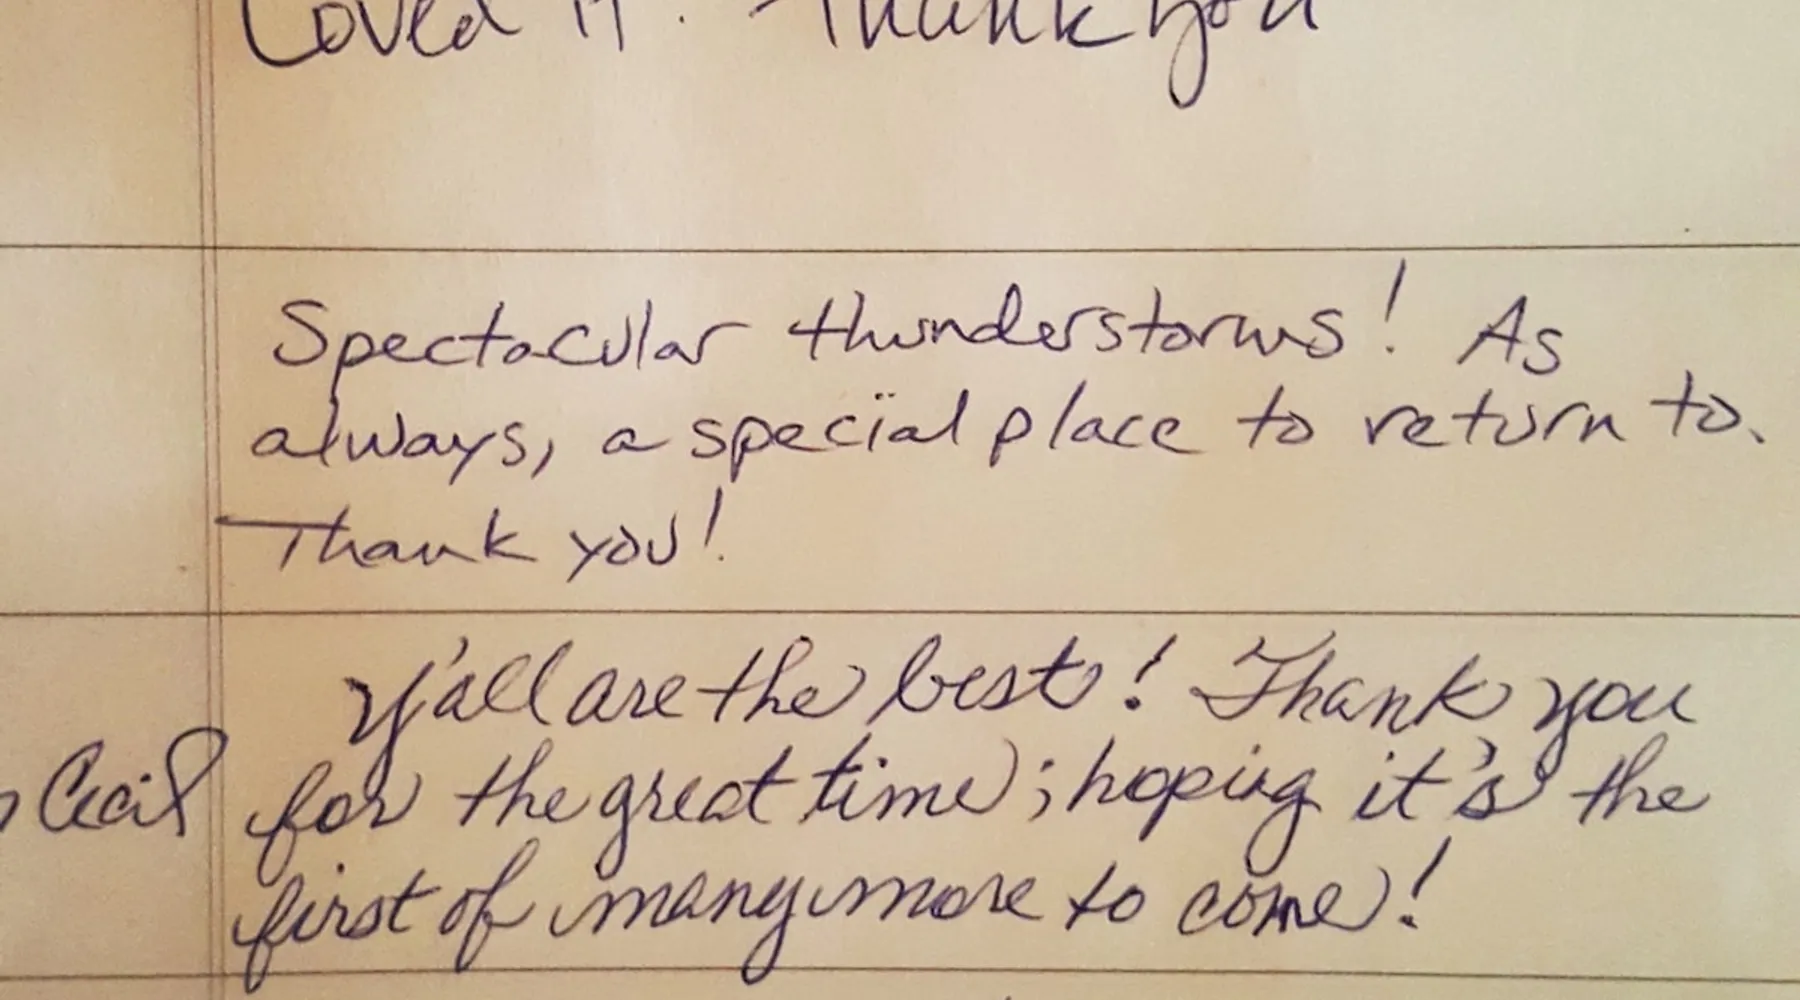 Loved it! Thank you
Spectacular thunderstorms! As
always, a special place to return to.
Thank you!
Y'all are the best! Thank you
Cecil for the great time; hoping it's the
first of many more to come!